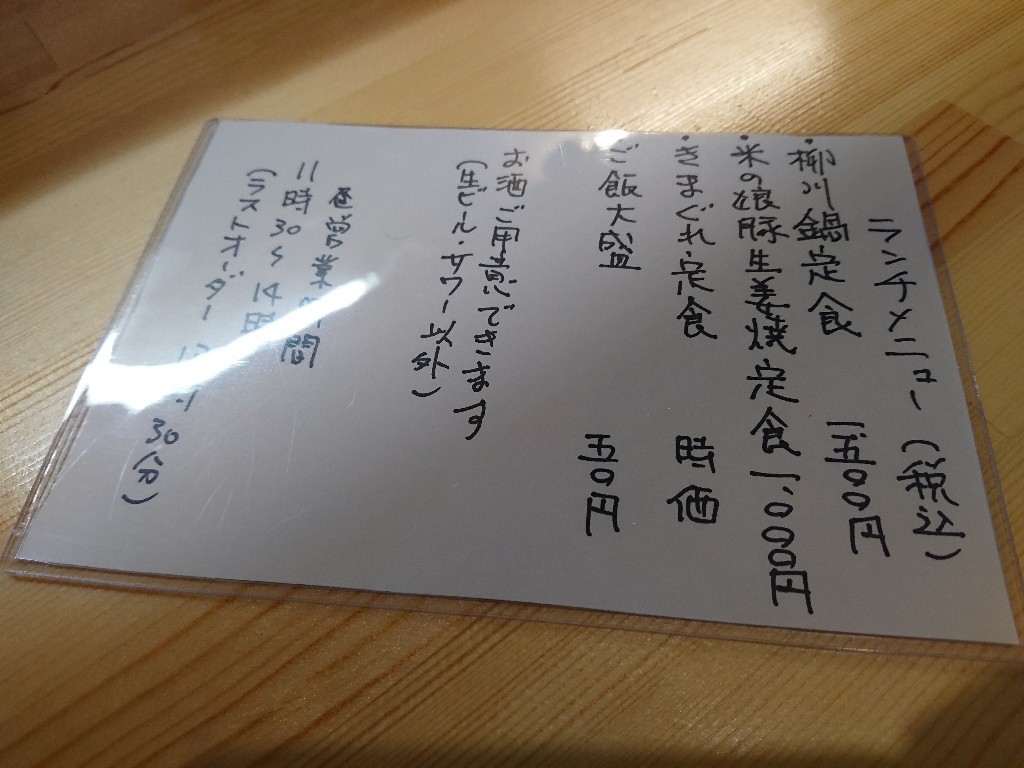 ランチメニュー(税込)
・柳川鍋定食 一、五〇〇円
・米の娘豚生姜焼定食 一、〇〇〇円
・きまぐれ定食 時価
ご飯大盛 五〇円
お酒ご用意できます
(生ビール・サワー以外)
昼営業時間
11時30〜14時
(ラストオーダー 30分)